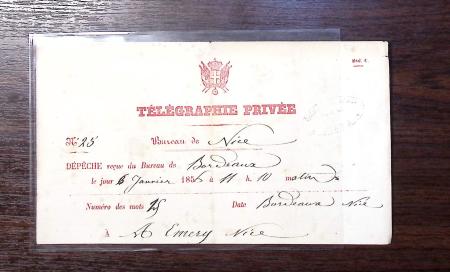 Mod. 4.
TÉLÉGRAPHIE PRIVÉE
N° 25 Bureau de Nice
DÉPÊCHE reçue du Bureau de Bordeaux
le jour 6 Janvier 185 à 11 h. 10 matin
Numéro des mots 25 Date Bordeaux Nice
À A Emery Nice